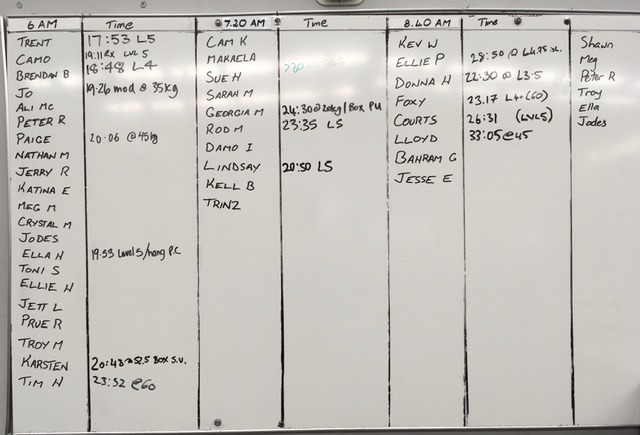 6 AM Time
TRENT 17:53 L5
CAMO 19:11 RX LVL 5
BRENDAN B 18:48 L4
JO 19:26 mod @ 35kg
ALI MC
PETER R
PAIGE 20:06 @45kg
NATHAN M
JERRY R
KATINA E
MEG M
CRYSTAL M
JODES
ELLA H 19:53 Level 5/hang P.C
TONI S
ELLIE H
JETT L
PRUE R
TROY M
KARSTEN 20:48 @ 52.5 BOX S.U.
TIM H 23:52 @60
7.20 AM Time
CAM K
MAKAELA
SUE H
SARAH M
GEORGIA M 24:30 @ 20kg / Box PU
ROD M 23:35 L5
DAMO I
LINDSAY 20:50 L5
KELL B
TRINZ
8.40 AM Time
KEV W
ELLIE P 28:50 @ L4.75
DONNA H 22:30 @ L3.5
FOXY 23.17 L4+ (60)
COURTS 26:31 (LVL5)
LLOYD 33:05 @ 45
BAHRAM G
JESSE E
Shawn
Meg
Peter R
Troy
Ella
Jodes